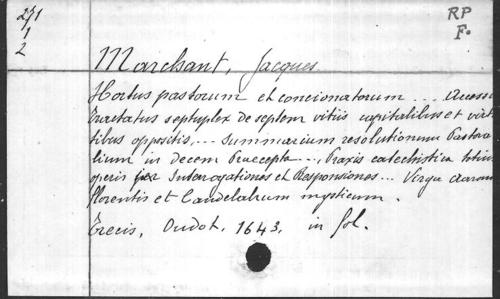 271
1
2
RP
F.
Marchant, Jacques
Hortus pastorum et concionatorum ... Accessit
Tractatus septuplex de septem vitiis capitalibus et virtu
tibus oppositis, ... Summarium resolutionum Pastora
lium in Decem Praecepta ..., Praxis catechistica totius
operis per Interrogationes et Responsiones ... Virga Aaronis
florentis et Candelabrum mysticum.
Trecis, Oudot, 1643, in fol.